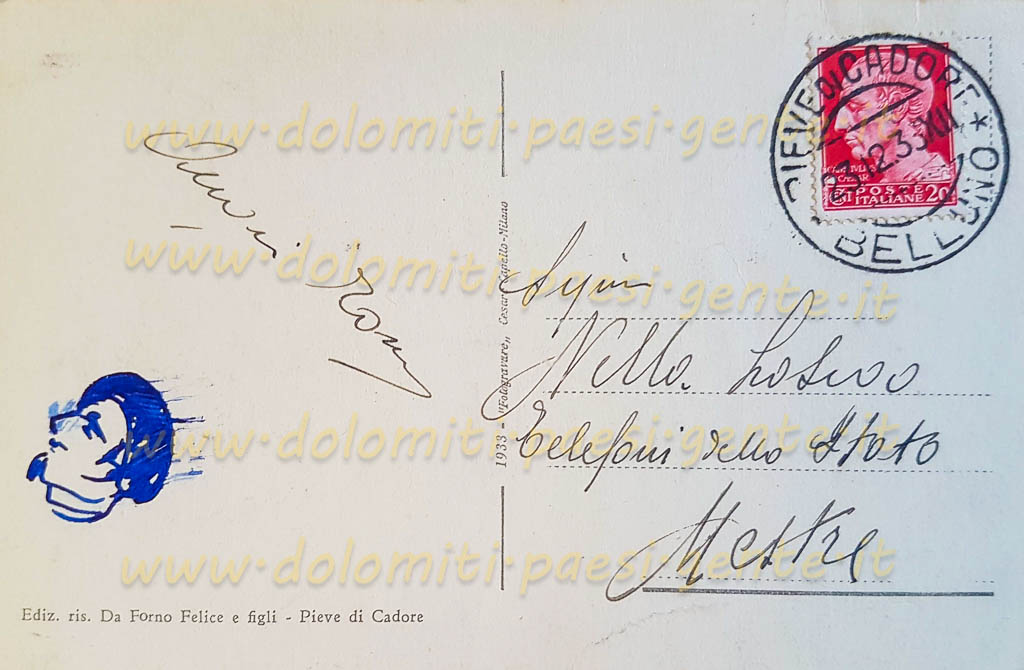 www·dolomiti-paesi-gente·it
www·dolomiti-paesi-gente·it
www·dolomiti-paesi-gente·it
www·dolomiti-paesi-gente·it
PIEVE DI CADORE
BELLUNO *
23.12.33 XII
POSTE
ITALIANE 20
1933 - "Fotogravure„ Cesare Capello-Milano
Nella
Telefoni dello Stato
Mestre
Ediz. ris. Da Forno Felice e figli - Pieve di Cadore